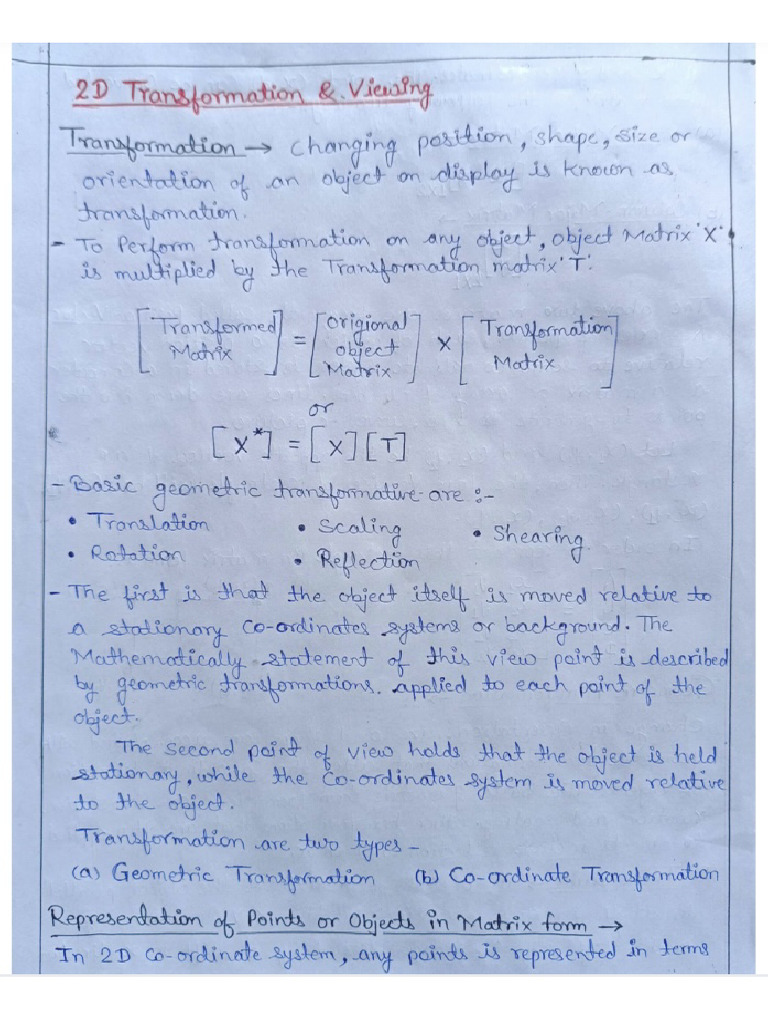 2D Transformation & Viewing
Transformation → changing position, shape, size or
orientation of an object on display is known as
transformation.
- To Perform transformation on any object, object Matrix 'X'
is multiplied by the Transformation matrix 'T'.
[Transformed Matrix] = [Origional object Matrix] × [Transformation Matrix]
or
[X*] = [X][T]
- Basic geometric transformative are :-
• Translation • Scaling • Shearing
• Rotation • Reflection
- The first is that the object itself is moved relative to
a stationary Co-ordinates systems or background. The
Mathematically statement of this view point is described
by geometric transformations. applied to each point of the
object.
The second point of view holds that the object is held
stationary, while the Co-ordinates system is moved relative
to the object.
Transformation are two types –
(a) Geometric Transformation (b) Co-ordinate Transformation
Representation of Points or Objects in Matrix form →
In 2D Co-ordinate system, any points is represented in terms